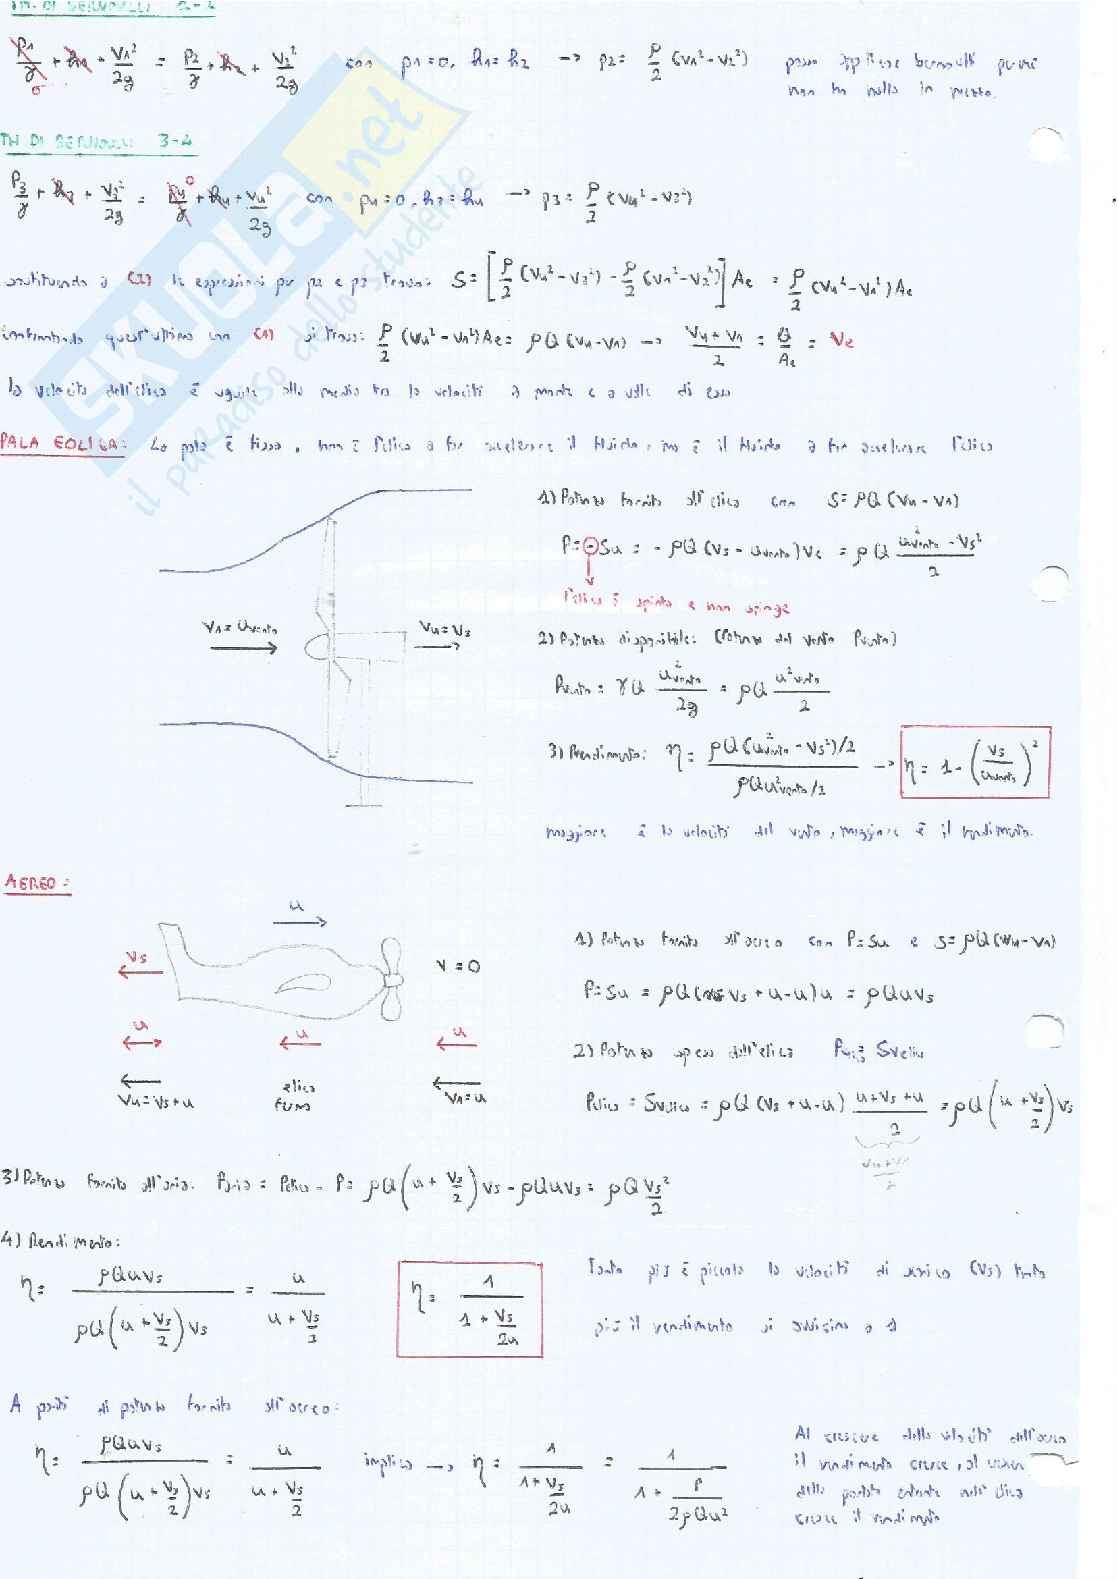 TH. DI BERNOULLI 1-2
p1/γ + h1 + V1²/2g = p2/γ + h2 + V2²/2g con p1=0, h1=h2 → p2= ρ/2 (V1²-V2²) posso applicare bernoulli perché
non ho nulla in mezzo.
TH DI BERNOULLI 3-4
P3/γ + h3 + V3²/2g = p4/γ + h4 + V4²/2g con p4=0, h3=h4 → p3= ρ/2 (V4²-V3²)
sostituendo a (2) le espressioni per p2 e p3 trovo: S= [ρ/2 (V4²-V3²) - ρ/2 (V1²-V2²)] Ae = ρ/2 (V4²-V1²) Ae
Confrontando quest'ultima con (1) si trova: ρ/2 (V4²-V1²) Ae = ρQ (V4-V1) → (V4+V1)/2 = Q/Ae = Ve
la velocità dell'elica è uguale alla media tra le velocità a monte e a valle di essa
PALA EOLICA: La pala è fissa, non è l'elica a far accelerare il fluido, ma è il fluido a far accelerare l'elica
1) Potenza fornita all'elica con S=ρQ(V4-V1)
P= -Su = -ρQ(Vs - uvento)Ve = ρQ (u²vento - Vs²)/2
l'elica è spinta e non spinge
V1=uvento
V4=Vs
2) Potenza disponibile: (Potenza del vento Pvento)
Pvento = γQ u²vento/2g = ρQ u²vento/2
3) Rendimento: η = (ρQ(u²vento - Vs²)/2)/(ρQu²vento/2) → η = 1 - (Vs/uvento)²
maggiore è la velocità del vento, maggiore è il rendimento.
AEREO:
u
Vs
V=0
u
u
u
V4=Vs+u
elica
ferma
V1=u
1) Potenza fornita all'aereo con P=Su e S=ρQ(V4-V1)
P=Su = ρQ(Vs+u-u)u = ρQuVs
2) Potenza spesa dall'elica
Pelica = SVelica = ρQ(Vs+u-u) (u+Vs+u)/2 = ρQ(u + Vs/2)Vs
3) Potenza fornita all'aria: Paria = Pelica - P = ρQ(u + Vs/2)Vs - ρQuVs = ρQ Vs²/2
4) Rendimento:
η = ρQuVs/(ρQ(u + Vs/2)Vs) = u/(u + Vs/2) η = 1/(1 + Vs/2u)
Tanto più è piccola la velocità di scarico (Vs) tanto
più il rendimento si avvicina a 1
A parità di potenza fornita all'aereo:
η = ρQuVs/(ρQ(u + Vs/2)Vs) = u/(u + Vs/2) implica → η = 1/(1 + Vs/2u) = 1/(1 + P/2ρQu²)
Al crescere della velocità dell'aereo
il rendimento cresce, al
della portata entrante nell'elica
cresce il rendimento
SKUOLA.net
il paradiso dello studente